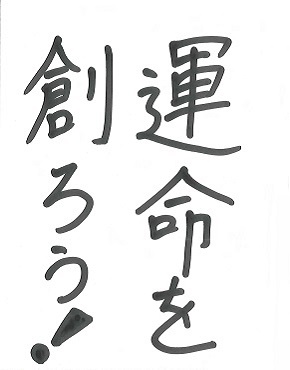 運命を
創ろう!